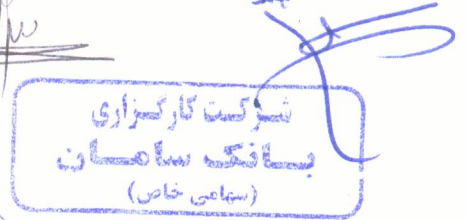 شرکت کارگزاری
بانک سامان
(سهامی خاص)